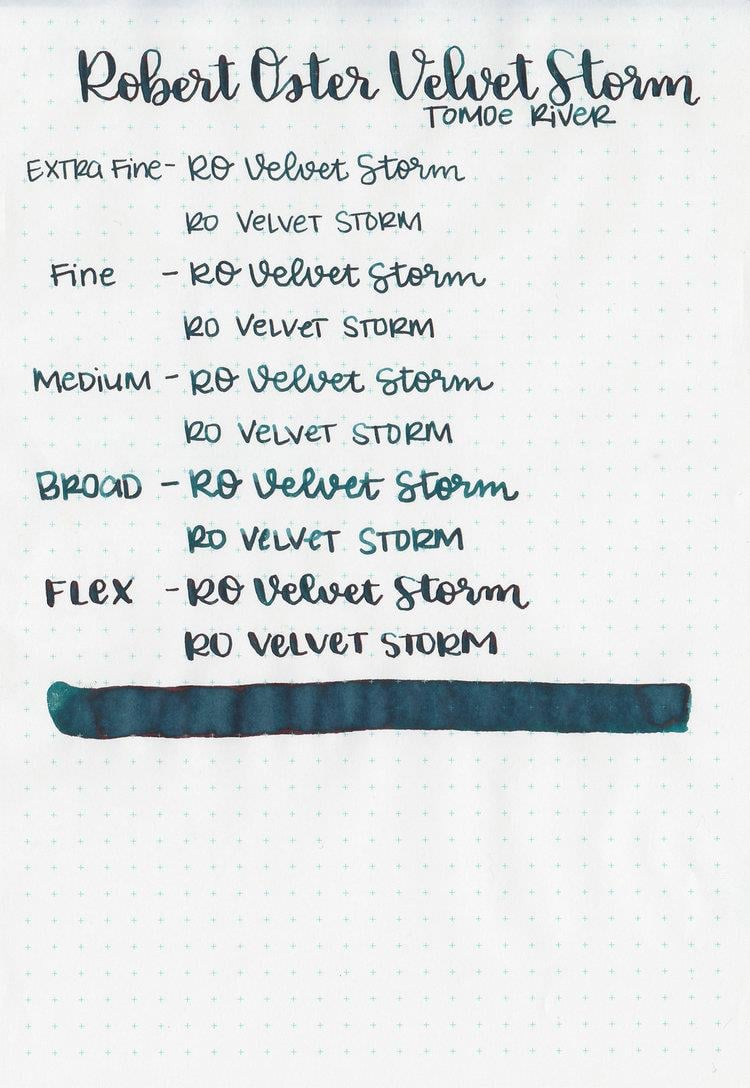 Robert Oster Velvet Storm
TOMOE RIVER
EXTRA FINE - RO Velvet Storm
RO VELVET STORM
Fine - RO Velvet Storm
RO VELVET STORM
MEDIUM - RO Velvet Storm
RO VELVET STORM
BROAD - RO Velvet Storm
RO VELVET STORM
FLEX - RO Velvet Storm
RO VELVET STORM